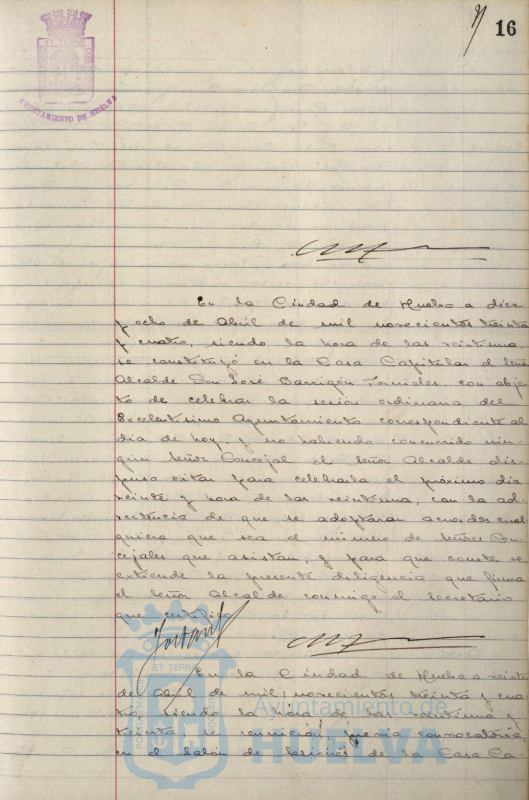 16
AYUNTAMIENTO DE HUELVA
En la Ciudad de Huelva a diez
y ocho de Abril de mil novecientos treinta
y cuatro, siendo la hora de las veintiuna,
se constituyó en la Casa Capitular el Señor
Alcalde Don José Barrigón Fornieles con obje
to de celebrar la sesión ordinaria del
Excelentísimo Ayuntamiento correspondiente al
día de hoy, y no habiendo concurrido nin-
gún Señor Concejal el Señor Alcalde dis
puso citar para celebrarla el próximo día
veinte y hora de las veintiuna, con la ad-
vertencia de que se adoptarán acuerdos cual
quiera que sea el número de Señores Con-
cejales que asistan, y para que conste se
extiende la presente diligencia que firma
el Señor Alcalde conmigo el Secretario
que certifico.
En la Ciudad de Huelva a veinte
de Abril de mil novecientos treinta y cua
tro, siendo la hora de las veintiuna y
treinta se reunieron, previa convocatoria,
en el Salón de Sesiones de la Casa Ca-
Ayuntamiento de
HUELVA